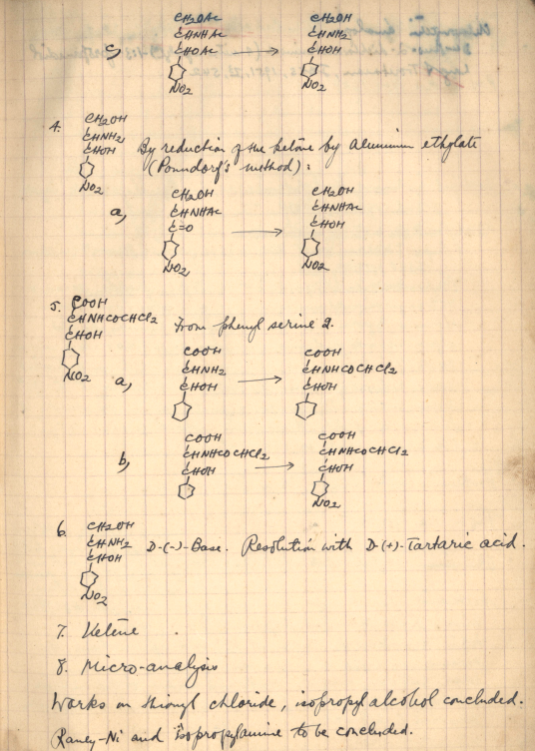 c,
CH2OAc CH2OH
CHNHAc CHNH2
CHOAc CHOH
NO2 NO2
4.
CH2OH
CHNH2
CHOH
NO2
By reduction of the ketone by Aluminum ethylate
(Ponndorf's method):
a,
CH2OH CH2OH
CHNHAc CHNHAc
C=O CHOH
NO2 NO2
5.
COOH
CHNHCOCHCl2
CHOH
NO2
From phenyl serine
a,
COOH COOH
CHNH2 CHNHCOCHCl2
CHOH CHOH
b,
COOH COOH
CHNHCOCHCl2 CHNHCOCHCl2
CHOH CHOH
NO2
6.
CH2OH
CHNH2
CHOH
NO2
D-(-)-Base. Resolution with D(+)-Tartaric acid.
7. Ketene
8. Micro-analysis
Works on thionyl chloride, isopropyl alcohol concluded.
Raney-Ni and Isopropylamine to be concluded.